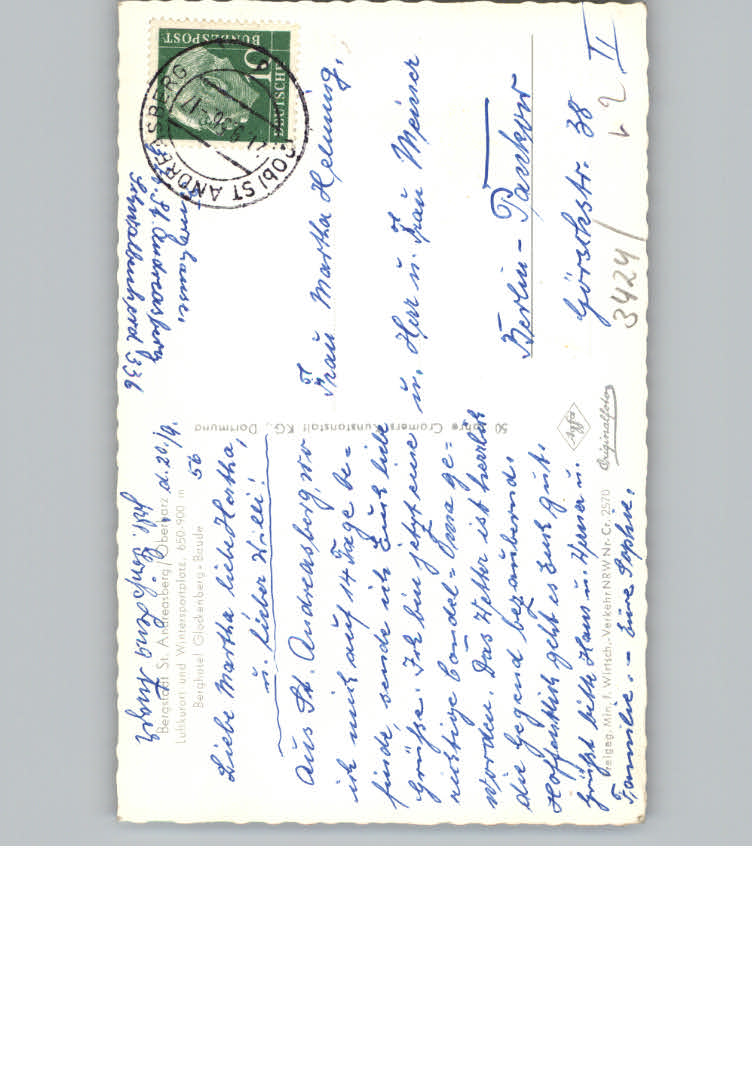 Bergstadt St. Andreasberg/Oberharz
Luftkurort und Wintersportplatz, 650-900 m
Berghotel Glockenberg-Baude
d. 20./9.
56
Liebe Martha, liebe Hertha,
u. lieber Willi!
Aus St. Andreasberg, wo
ich mich auf 14 Tage be-
finde, sende ich Euch liebe
Grüße. Ich bin jetzt eine
richtige Bandel-Oma ge-
worden. Das Wetter ist herrlich
die Gegend bezaubernd.
Hoffentlich geht es Euch gut.
Grüßt bitte Hans u. Werner u.
Familie. – Eure Sophie.
Freigeg. Min. f. Wirtsch.-Verkehr NRW Nr. Cr. 2570
Agfa
Originalfoto
50 Jahre Cramers Kunstanstalt KG., Dortmund
St. Andreasberg
336
DEUTSCHE
BUNDESPOST
10
(20b) ST ANDREASBERG
Frau Martha Helming,
u. Herr u. Frau Meiner
Berlin-Pankow
Görschstr. 38
3424/
II